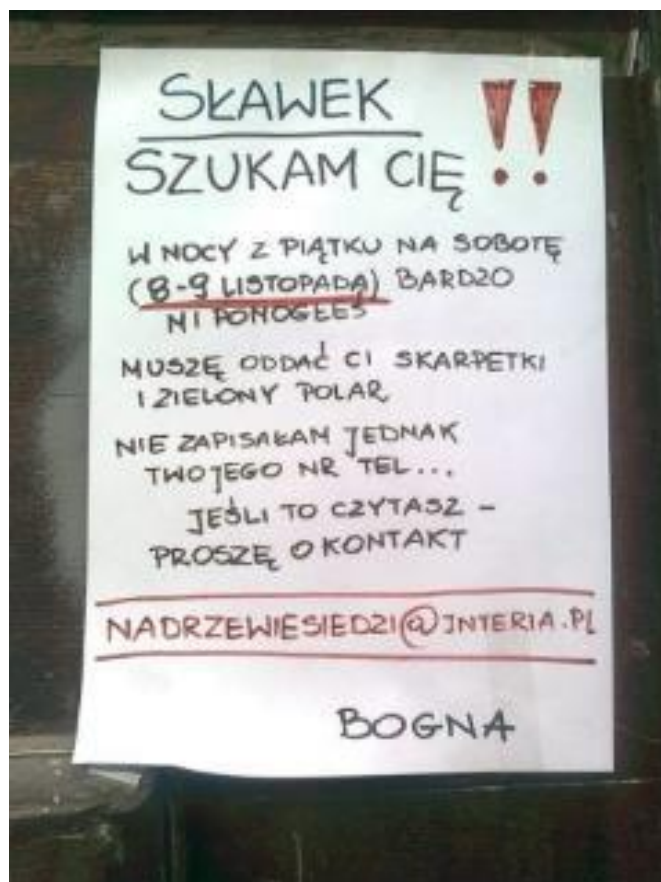 SŁAWEK !!
SZUKAM CIĘ
W NOCY Z PIĄTKU NA SOBOTĘ
(8-9 LISTOPADA) BARDZO
MI POMOGŁEŚ
MUSZĘ ODDAĆ CI SKARPETKI
I ZIELONY POLAR
NIE ZAPISAŁAM JEDNAK
TWOJEGO NR TEL...
JEŚLI TO CZYTASZ –
PROSZĘ O KONTAKT
NADRZEWIESIEDZI@INTERIA.PL
BOGNA